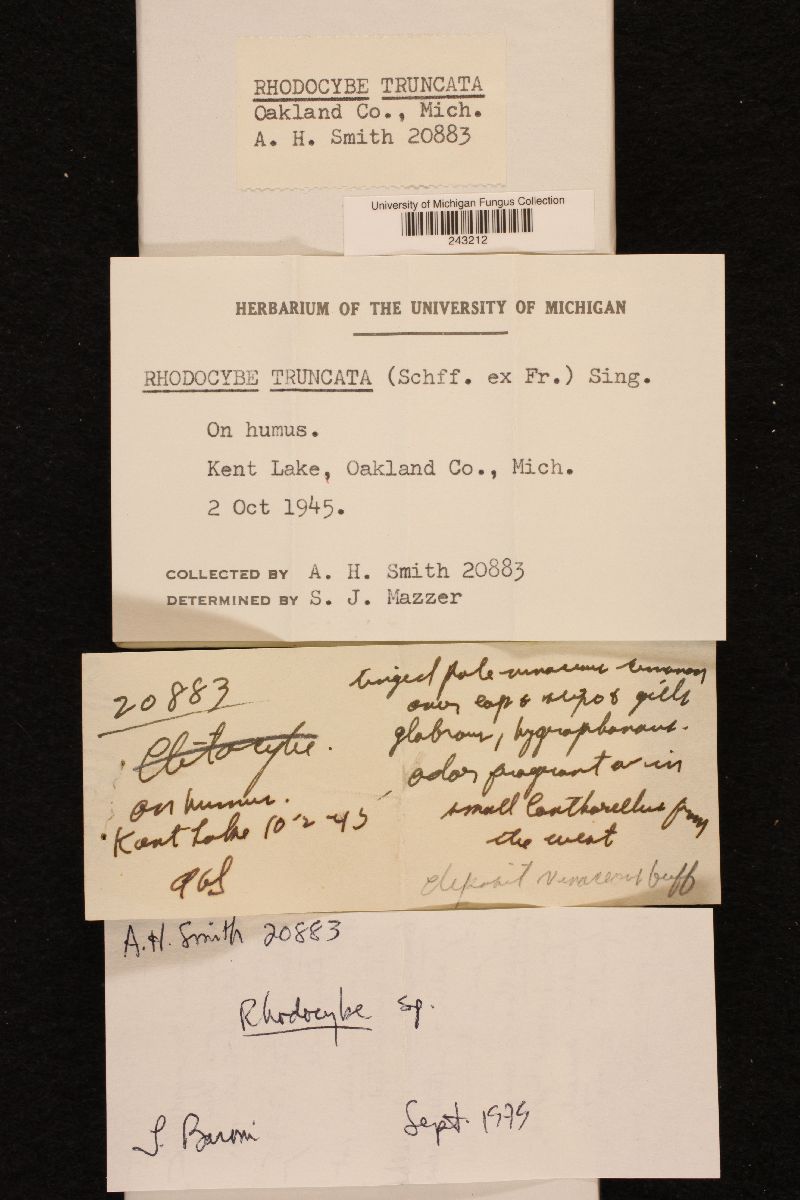 RHODOCYBE TRUNCATA
Oakland Co., Mich.
A. H. Smith 20883
University of Michigan Fungus Collection
243212
HERBARIUM OF THE UNIVERSITY OF MICHIGAN
RHODOCYBE TRUNCATA (Schff. ex Fr.) Sing.
On humus.
Kent Lake, Oakland Co., Mich.
2 Oct 1945.
COLLECTED BY A. H. Smith 20883
DETERMINED BY S. J. Mazzer
20883
Clitocybe.
on humus.
Kent Lake 10-2-45
tinged pale vinaceous cinnamon
over cap & gills
glabrous, hygrophanous.
odor fragrant as in
small Cantharellus from
the west
deposit vinaceous buff
A.H. Smith 20883
Rhodocybe sp.
T. Baroni
Sept. 1979